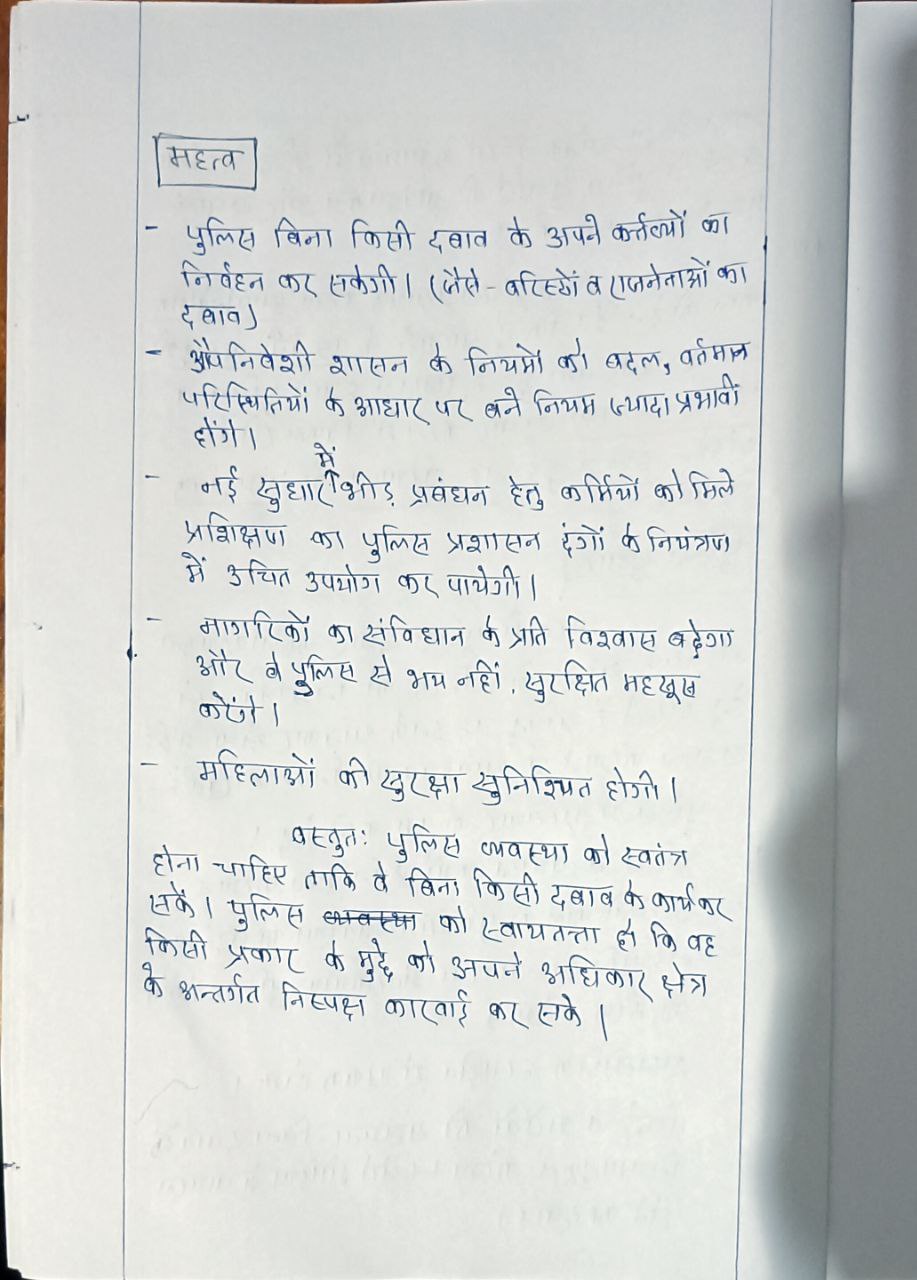 महत्व
- पुलिस बिना किसी दबाव के अपने कर्त्तव्यों का
निर्वहन कर सकेगी। (जैसे - वरिष्ठों व राजनेताओं का
दबाव)
- औपनिवेशी शासन के नियमों को बदल, वर्तमान
परिस्थितियों के आधार पर बने नियम ज्यादा प्रभावी
होंगे।
- नई सुधार में भीड़ प्रबंधन हेतु कर्मियों को मिले
प्रशिक्षण का पुलिस प्रशासन दंगों के नियंत्रण
में उचित उपयोग कर पायेगी।
- नागरिकों का संविधान के प्रति विश्वास बढ़ेगा
और वे पुलिस से भय नहीं, सुरक्षित महसूस
करेंगे।
- महिलाओं की सुरक्षा सुनिश्चित होगी।
वस्तुतः पुलिस व्यवस्था को स्वतंत्र
होना चाहिए ताकि वे बिना किसी दबाव के कार्य कर
सकें। पुलिस व्यवस्था को स्वायतत्ता हो कि वह
किसी प्रकार के मुद्दे को अपने अधिकार क्षेत्र
के अन्तर्गत निस्पक्ष कारवाई कर सके।